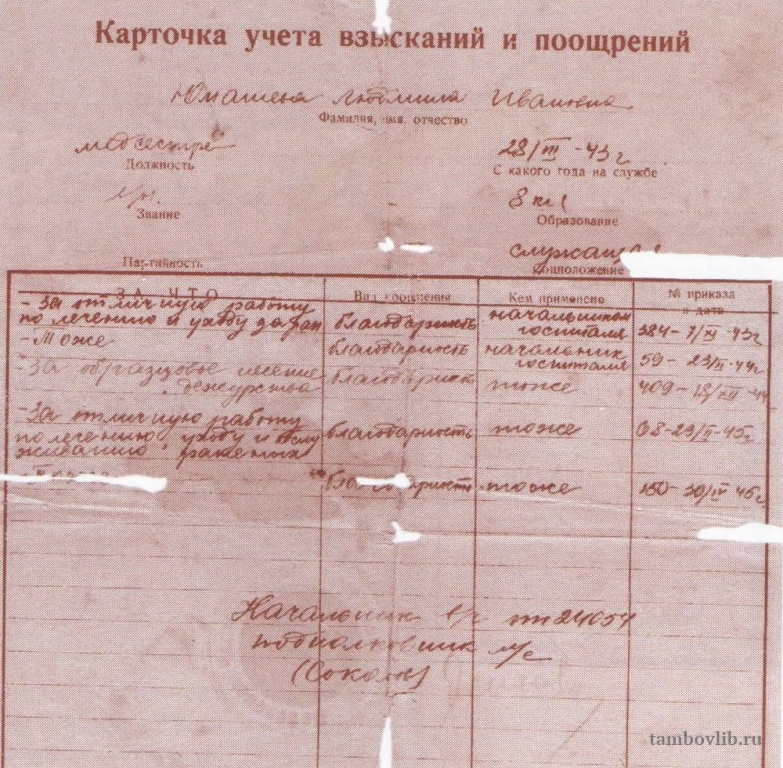 Карточка учета взысканий и поощрений
Юмашева Людмила Ивановна
Фамилия, имя, отчество
медсестра 28/III-43г
Должность С какого года на службе
8 кл
Звание Образование
служащая
Партийность Соцположение
ЗА ЧТО Вид поощрения Кем применено № приказа и дата
- За отличную работу благодарность начальником 384-7/XI-43г
по лечению и уходу за ран госпиталя
- То же благодарность начальник 59-23/II-44г
госпиталя
- За образцовое несение благодарность тоже 409-18/XII-44
дежурства
- За отличную работу благодарность тоже 68-23/II-45г
по лечению, уходу и обслу
живанию раненых
благодарность тоже 150-30/IV-45г
Начальник в/ч пп 24054
подполковник м/с
(Соколов)
tambovlib.ru